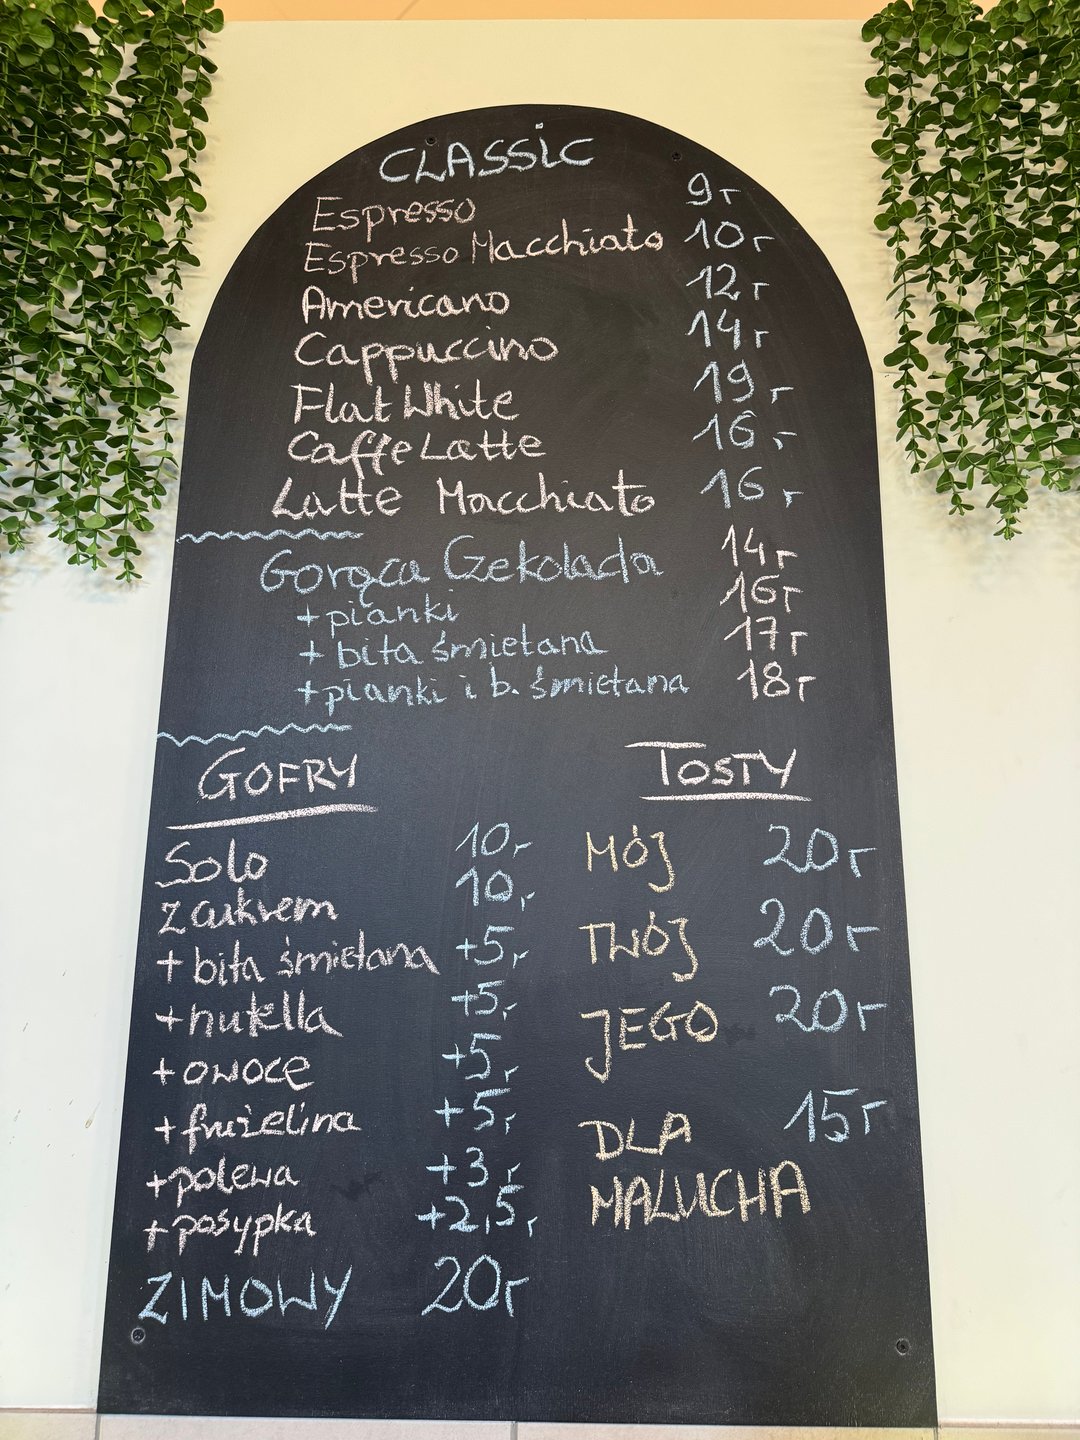 CLASSIC
Espresso 9,-
Espresso Macchiato 10,-
Americano 12,-
Cappuccino 14,-
Flat White 19,-
Caffe Latte 16,-
Latte Macchiato 16,-
Gorąca Czekolada 14,-
+ pianki 16,-
+ bita śmietana 17,-
+ pianki i b. śmietana 18,-
GOFRY
Solo 10,-
z cukrem 10,-
+ bita śmietana +5,-
+ nutella +5,-
+ owoce +5,-
+ frużelina +5,-
+ polewa +3,-
+ posypka +2,5,-
ZIMOWY 20,-
TOSTY
MÓJ 20,-
TWÓJ 20,-
JEGO 20,-
DLA 15,-
MALUCHA